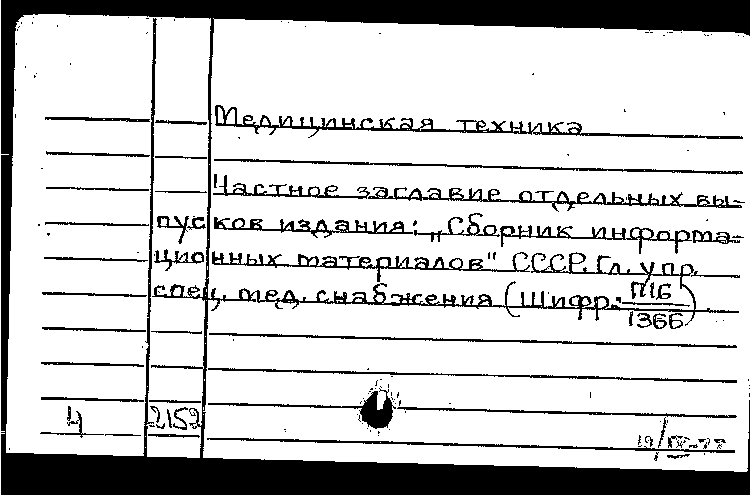 Медицинская техника
Частное заглавие отдельных вы-
пусков издания: „Сборник информа-
ционных материалов" СССР. Гл. упр.
спец. мед. снабжения (Шифр: П16/1366)
4 2152
19/IX-77